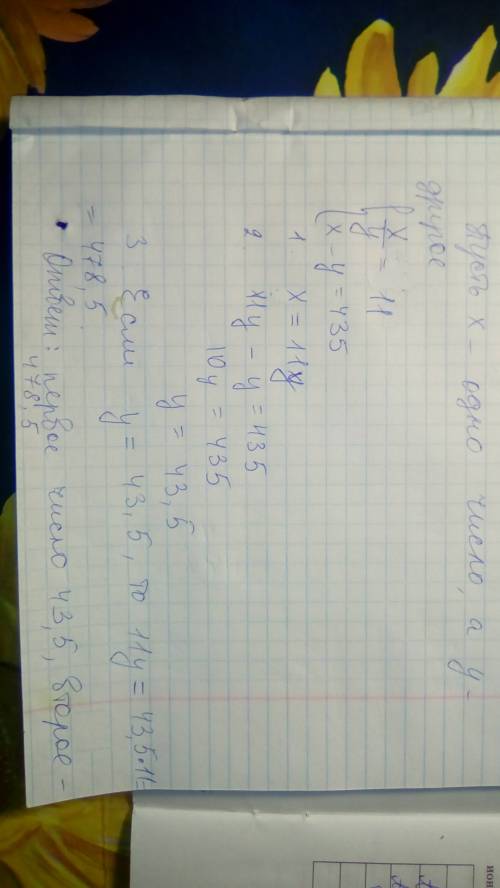 Пусть x - одно число, а y -
другое
{ x/y = 11
x - y = 435
1. x = 11y
2. 11y - y = 435
10y = 435
y = 43,5
3 Если y = 43,5, то 11y = 43,5·11=
= 478,5.
Ответ: первое число 43,5, второе -
478,5